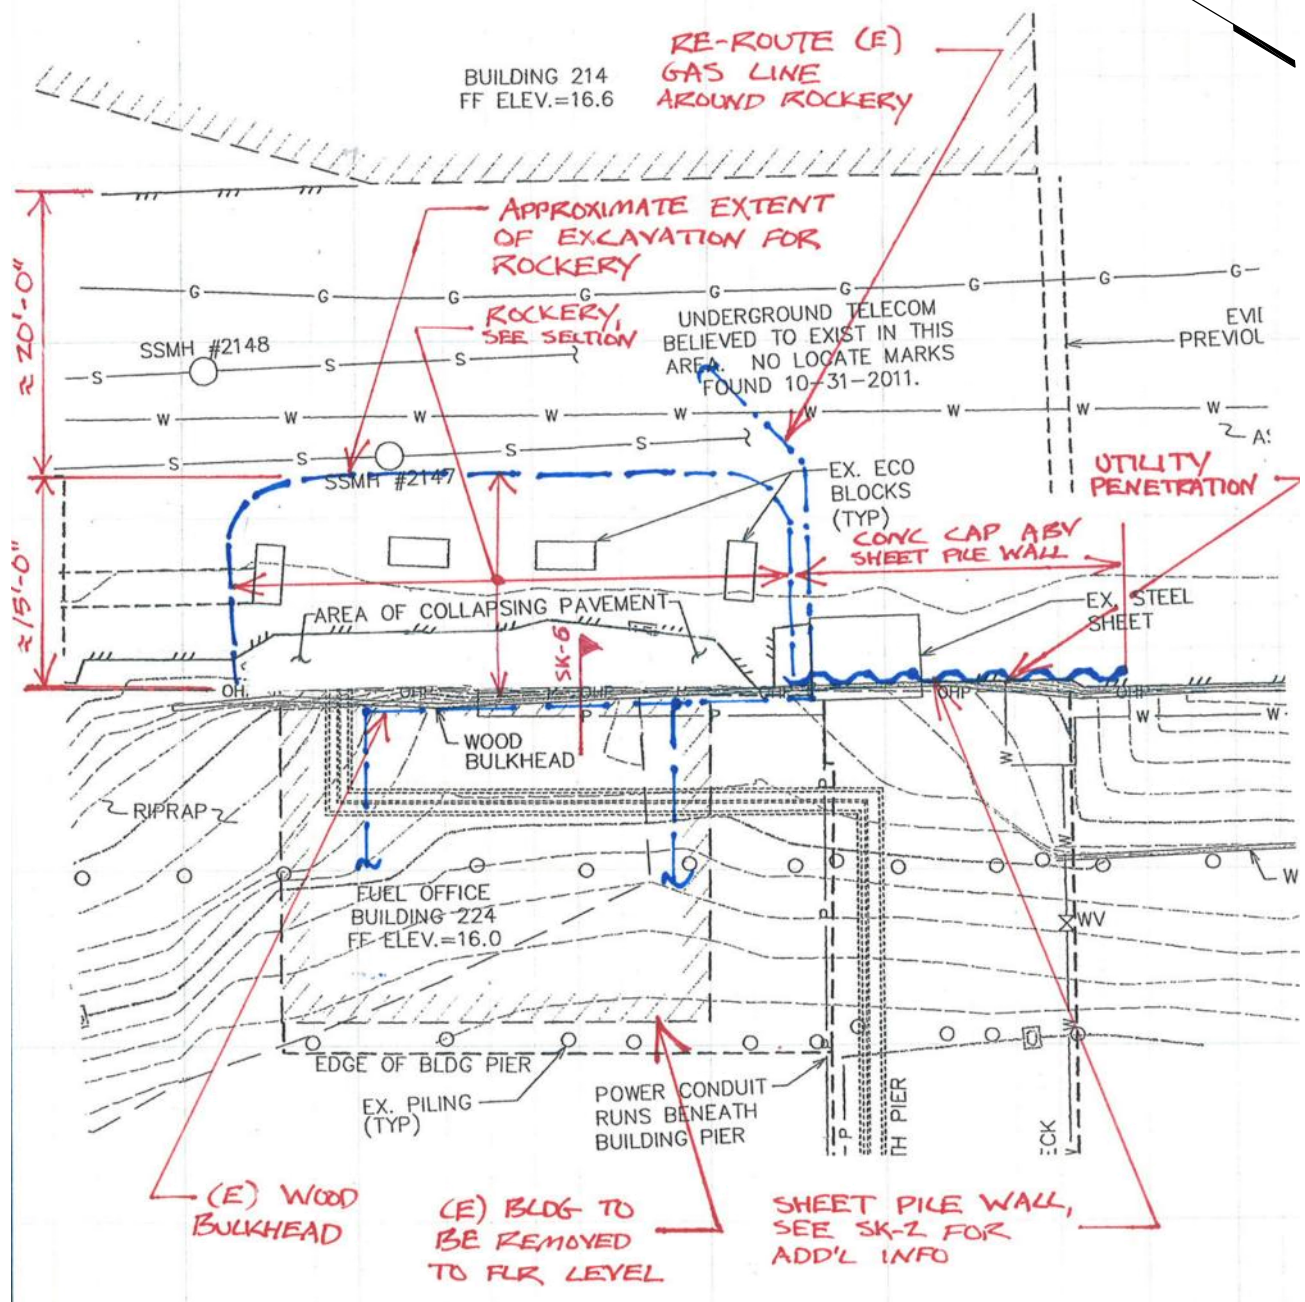 RE-ROUTE (E)
GAS LINE
AROUND ROCKERY
BUILDING 214
FF ELEV.=16.6
APPROXIMATE EXTENT
OF EXCAVATION FOR
ROCKERY
≈ 20'-0"
G G G G G G G G G
ROCKERY,
SEE SECTION
UNDERGROUND TELECOM
BELIEVED TO EXIST IN THIS
AREA. NO LOCATE MARKS
FOUND 10-31-2011.
EVID
PREVIOU
SSMH #2148
S S S S
W W W W W W W W W
S S S S S
SSMH #2147
AS
UTILITY
PENETRATION
EX. ECO
BLOCKS
(TYP)
CONC CAP ABV
SHEET PILE WALL
≈ 15'-0"
AREA OF COLLAPSING PAVEMENT
EX. STEEL
SHEET
SK-6
OH OHP OHP OHP OHP OHP
P P
W W W
WOOD
BULKHEAD
RIPRAP
W
FUEL OFFICE
BUILDING 224
FF ELEV.=16.0
WV
EDGE OF BLDG PIER
EX. PILING
(TYP)
POWER CONDUIT
RUNS BENEATH
BUILDING PIER
P
TH PIER
ECK
(E) WOOD
BULKHEAD
(E) BLDG TO
BE REMOVED
TO FLR LEVEL
SHEET PILE WALL,
SEE SK-2 FOR
ADD'L INFO